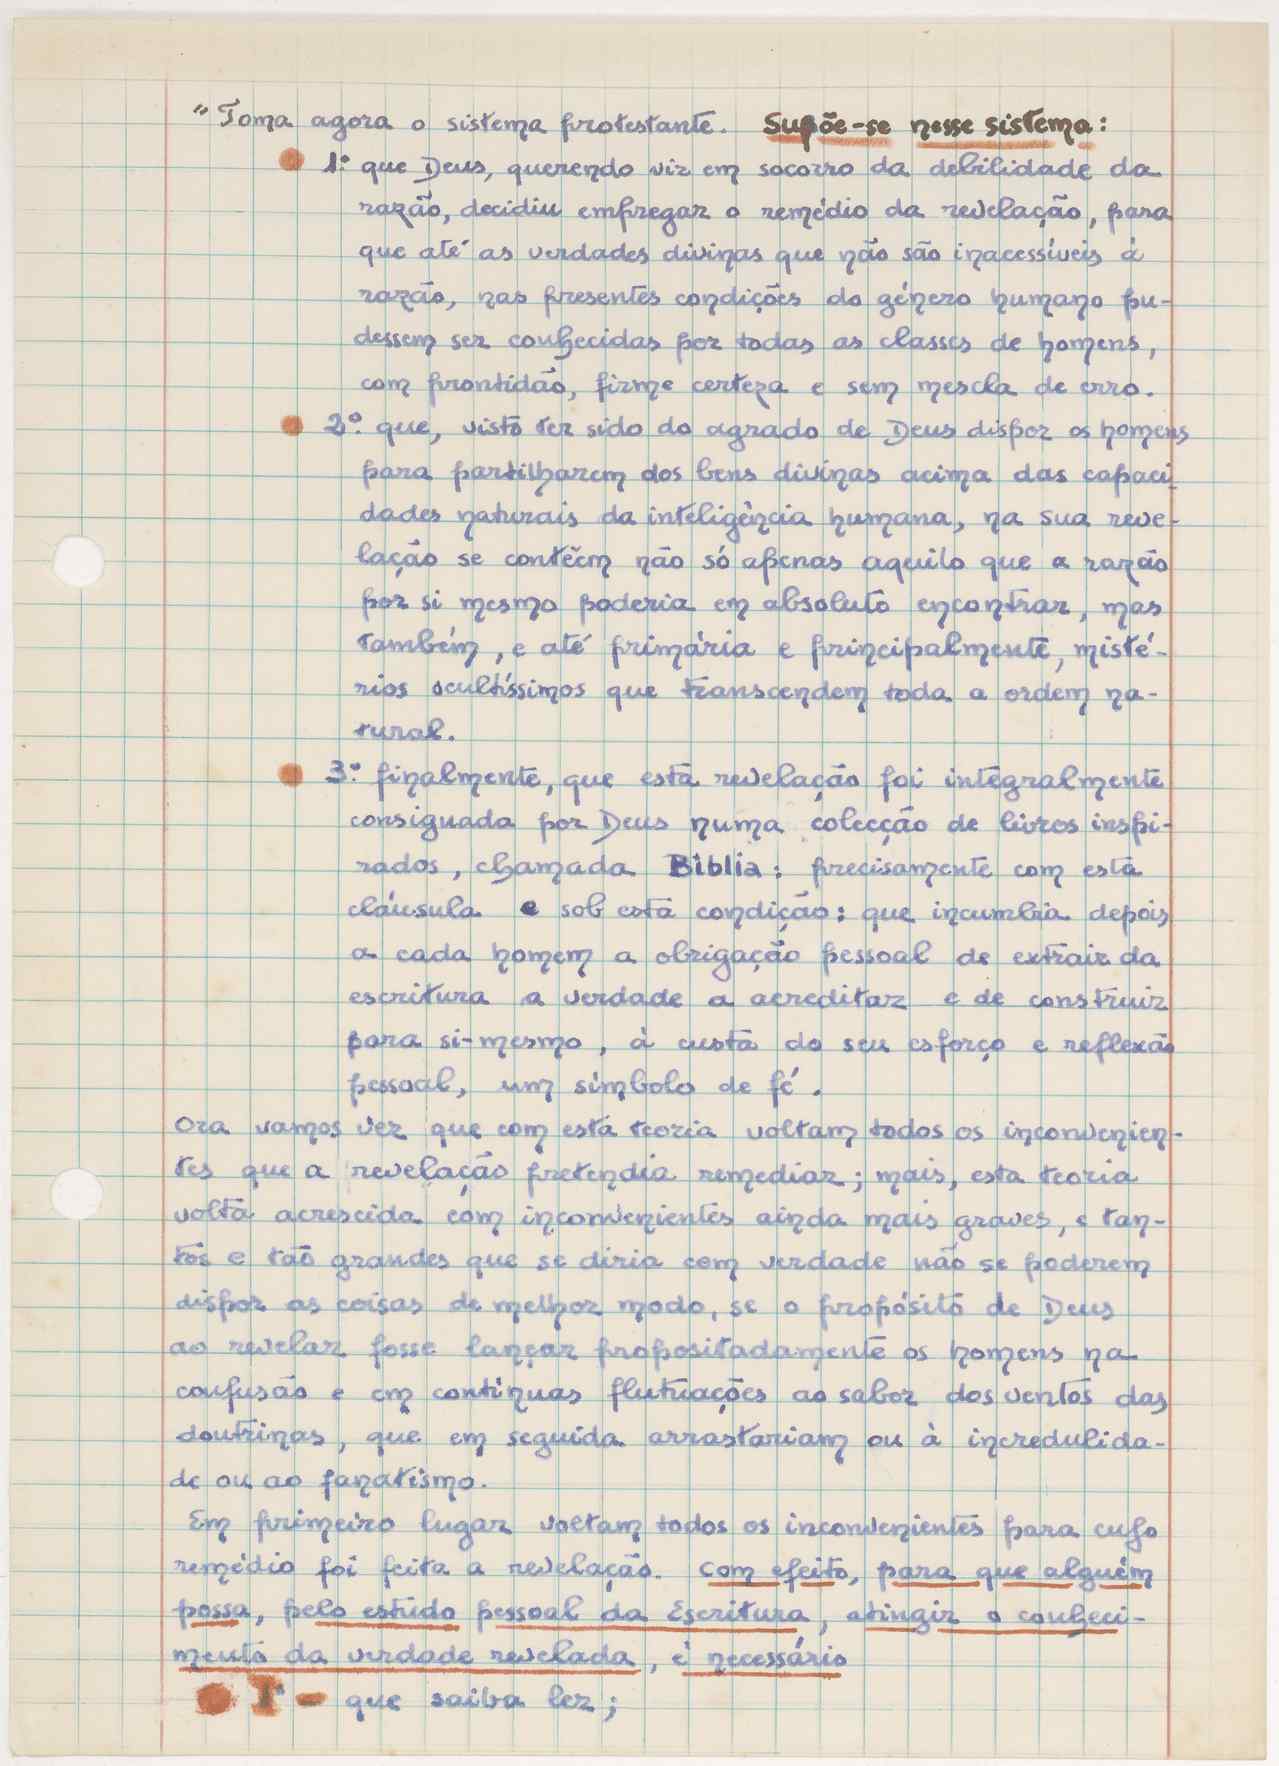 "Toma agora o sistema protestante. Supõe-se nesse sistema:
1º que Deus, querendo vir em socorro da debilidade da
razão, decidiu empregar o remédio da revelação, para
que até as verdades divinas que não são inacessíveis à
razão, nas presentes condições do género humano pu-
dessem ser conhecidas por todas as classes de homens,
com prontidão, firme certeza e sem mescla de erro.
2º que, visto ter sido do agrado de Deus dispor os homens
para partilharem dos bens divinos acima das capaci-
dades naturais da inteligência humana, na sua reve-
lação se contêem não só apenas aquilo que a razão
por si mesmo poderia em absoluto encontrar, mas
também, e até primária e principalmente, misté-
rios ocultíssimos que transcendem toda a ordem na-
tural.
3º finalmente, que esta revelação foi integralmente
consignada por Deus numa colecção de livros inspi-
rados, chamada Bíblia: precisamente com esta
cláusula e sob esta condição: que incumbia depois
a cada homem a obrigação pessoal de extrair da
escritura a verdade a acreditar e de construir
para si-mesmo, à custa do seu esforço e reflexão
pessoal, um símbolo de fé.
Ora vamos ver que com esta teoria voltam todos os inconvenien-
tes que a revelação pretendia remediar; mais, esta teoria
volta acrescida com inconvenientes ainda mais graves, e tan-
tos e tão grandes que se diria com verdade não se poderem
dispor as coisas de melhor modo, se o propósito de Deus
ao revelar fosse lançar propositadamente os homens na
confusão e em contínuas flutuações ao sabor dos ventos das
doutrinas, que em seguida arrastariam ou à incredulida-
de ou ao fanatismo.
Em primeiro lugar voltam todos os inconvenientes para cujo
remédio foi feita a revelação. Com efeito, para que alguém
possa, pelo estudo pessoal da Escritura, atingir o conheci-
mento da verdade revelada, é necessário
1º - que saiba ler;